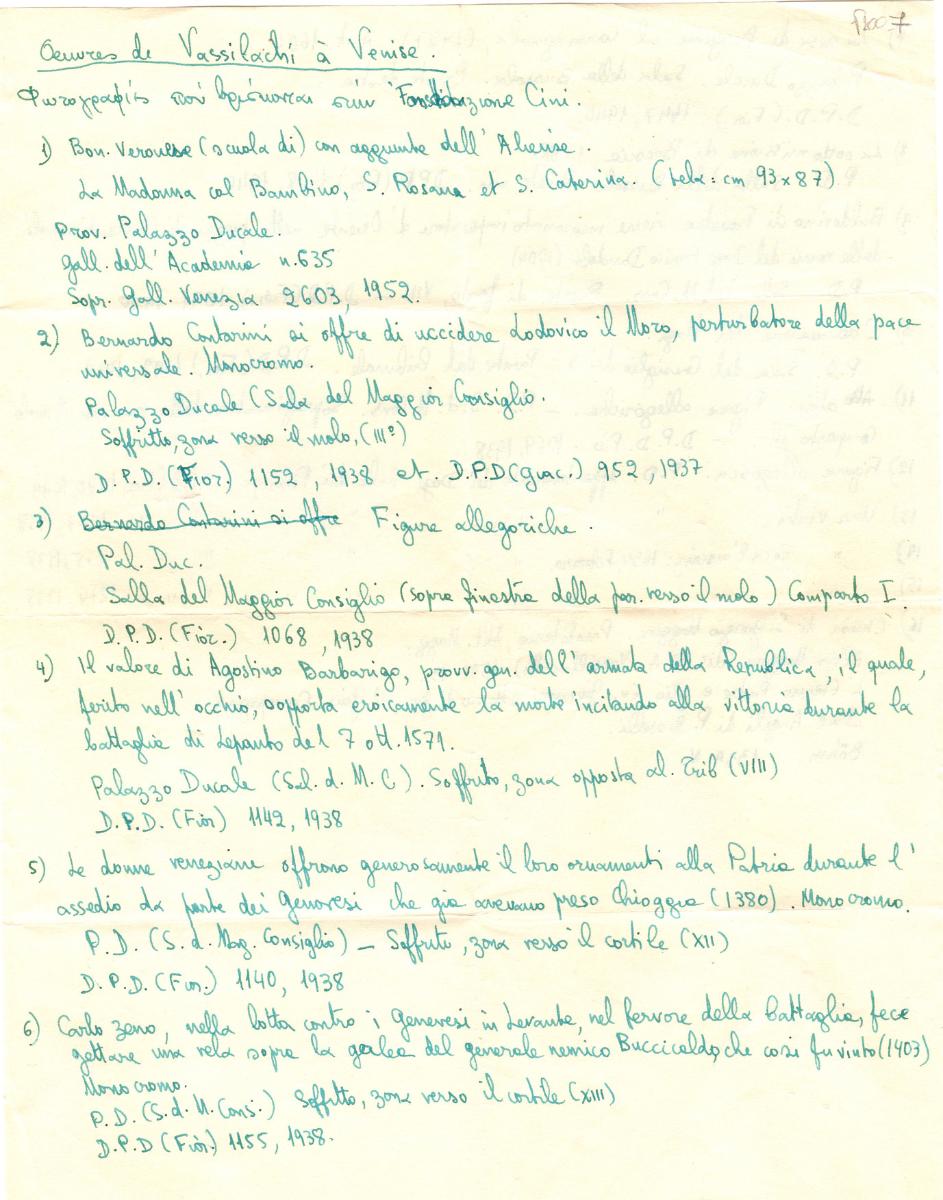 Oeuvres de Vassilachi à Venise.
Φωτογραφίες ποὺ βρίσκονται στὴν Fondazione Cini.
1) Bon. Veronese (scuola di) con aggiunte dell' Aliense.
La Madonna col Bambino, S. Rosana et S. Caterina. (tela: cm 93x87)
Prov. Palazzo Ducale.
Gall. dell' Academia n.635
Sopr. Gall. Venezia 2603, 1952.
2) Bernardo Contarini si offre di uccidere Lodovico il Moro, perturbatore della pace
universale. Monocromo.
Palazzo Ducale (Sala del Maggior Consiglio.
Soffitto, zona verso il molo, (IIIº)
D.P.D. (Fior.) 1152, 1938 et D.P.D (Giac.) 952, 1937
3) Bernardo Contarini si offre Figure allegoriche.
Pal. Duc.
Salla del Maggior Consiglio (sopra finestra della par. verso il molo) Comparto I.
D.P.D. (Fior.) 1068, 1938
4) Il valore di Agostino Barbarigo, provv. gen. dell' armata della Republica, il quale,
ferito nell' occhio, sopporta eroicamente la morte incitando alla vittoria durante la
battaglia di Lepanto del 7 ott. 1571.
Palazzo Ducale (Sal. d. M. C). Soffitto, zona opposta al. Trib (VIII)
D.P.D. (Fior) 1142, 1938
5) Le donne veneziane offrono generosamente il loro ornamenti alla Patria durante l'
assedio da parte dei Genovesi che gia avevano preso Chioggia (1380). Monocromo.
P.D. (S. d. Mag. Consiglio) – Soffitto, zona verso il cortile (XII)
D.P.D. (Fior.) 1140, 1938
6) Carlo Zeno, nella lotta contro i Genevesi in Levante, nel fervore della battaglia, fece
gettare una vela sopra la galea del generale nemico Buccicaldo, che cosi fu vinto (1403)
Monocromo.
P.D. (S. d. M. Cons.) Soffitto, zona verso il cortile (XIII)
D.P.D (Fior.) 1155, 1938.